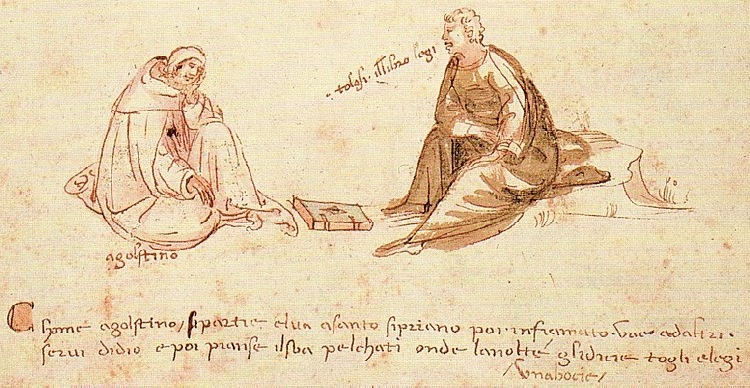 tolosi illibro legi
agolstino
Chome agolstino sipartie elva asanto sipriano porinfiamato vae adaltri
servi didio epoi pianse isua pelchati onde lanotte glidicie togli elegi
unabocie